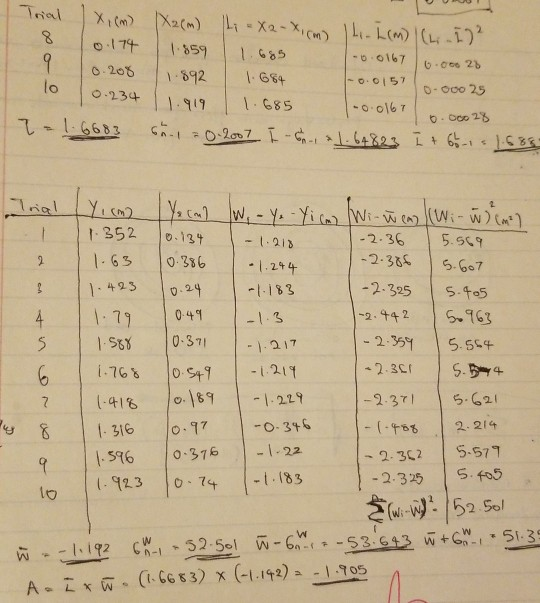 Trial X₁(m) X₂(m) Lᵢ = X₂ - X₁(m) Lᵢ - L̄(m) (Lᵢ - L̄)²
8 0.174 1.859 1.685 -0.0167 0.00028
9 0.208 1.892 1.684 -0.0157 0.00025
10 0.234 1.919 1.685 -0.0167 0.00028
L̄ = 1.6683 6ᴸₙ₋₁ = 0.2007 L̄ - 6ᴸₙ₋₁ = 1.64823 L̄ + 6ᴸₙ₋₁ =
Trial Y₁(m) Y₂(m) W₁ - Y₂ - Yi(m) Wi - W̄(m) (Wi - W̄)²(m²)
1 1.352 0.134 -1.218 -2.36 5.569
2 1.63 0.386 -1.244 -2.386 5.607
3 1.423 0.24 -1.183 -2.325 5.405
4 1.79 0.49 -1.3 -2.442 5.963
5 1.588 0.371 -1.217 -2.359 5.564
6 1.768 0.549 -1.219 -2.361
7 1.418 0.189 -1.229 -2.371 5.621
8 1.316 0.97 -0.346 -1.488 2.214
9 1.596 0.376 -1.22 -2.362 5.579
10 1.923 0.74 -1.183 -2.325 5.405
∑(Wi - W̄)² = 52.501
W̄ = -1.192 6ᵂₙ₋₁ = 52.501 W̄ - 6ᵂₙ₋₁ = -53.643 W̄ + 6ᵂₙ₋₁ =
A = L̄ x W̄ = (1.6683) x (-1.142) = -1.905